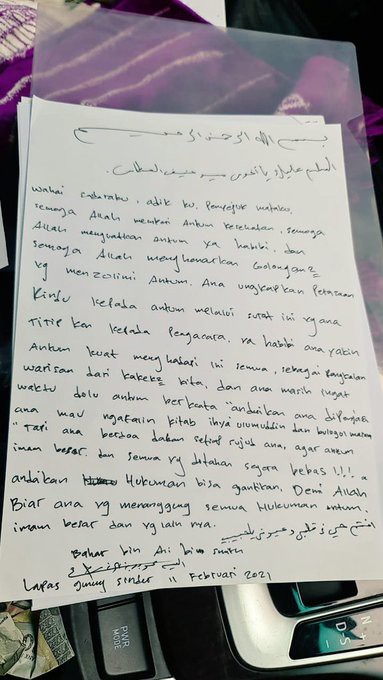 بسم الله الرحمن الرحيم
السلام عليك يا اخوي
wahai saudaraku, adik ku. Penyejuk mataku,
semoga Allah memberi Antum kesehatan, semoga
Allah menguatkan antum ya habibi, dan
semoga Allah menghancurkan Golongan2
yg menzolimi Antum. Ana ungkapkan Perasaan
Rindu kepada antum melalui surat ini yg ana
TiTip kan kepada Pengacara, ya habibi ana yakin
Antum kuat menghadapi ini semua, sebagai
warisan dari kakek2 kita, dan ana masih ingat
waktu dulu antum berkata "andaikan ana dipenjara
ana mau ngatamin kitab ihya ulumuddin dan bulogol marom
" Tapi ana berdoa dalam setiap sujud ana, agar antum
imam besar, dan semua yg ditahan segera bebas !!!.
andaikan Hukuman bisa gantikan, Demi Allah
Biar ana yg menanggung semua Hukuman antum.
imam besar dan yg lain nya.
Bahar bin Ali bin smith
Lapas gunung sindur 11 Februari 2021
PWR
MODE
N
D-S